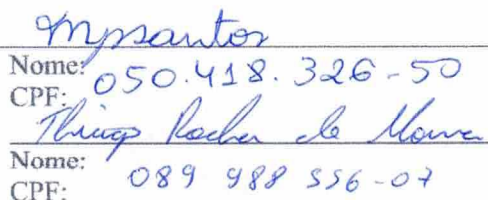 mpsantos
Nome:
CPF: 050.418.326-50
Thiago Rocha de Moura
Nome:
CPF: 089 988 556-07